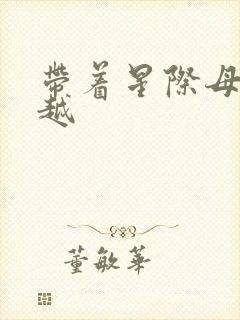 帶着星際母
越
董敏華